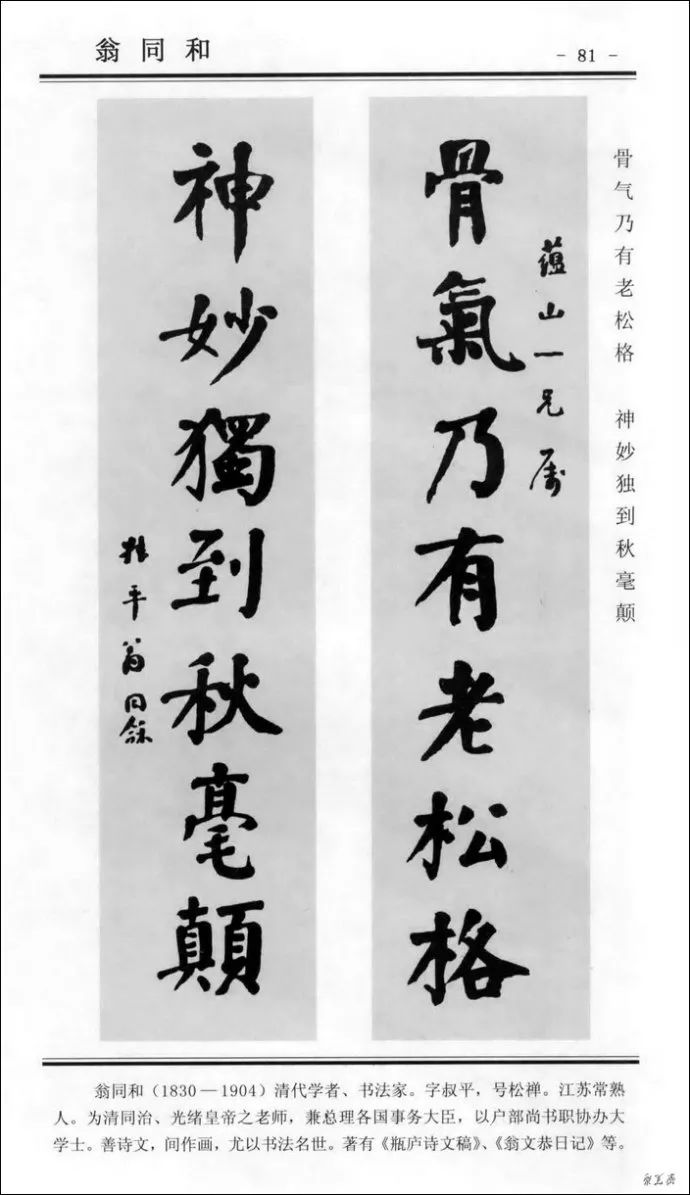 翁同和
- 81 -
骨气乃有老松格 神妙独到秋毫颠
蕴山一兄属
骨氣乃有老松格
神妙獨到秋毫顛
叔平翁同龢
翁同和（1830—1904）清代学者、书法家。字叔平，号松禅。江苏常熟
人。为清同治、光绪皇帝之老师，兼总理各国事务大臣，以户部尚书职协办大
学士。善诗文，间作画，尤以书法名世。著有《瓶庐诗文稿》、《翁文恭日记》等。